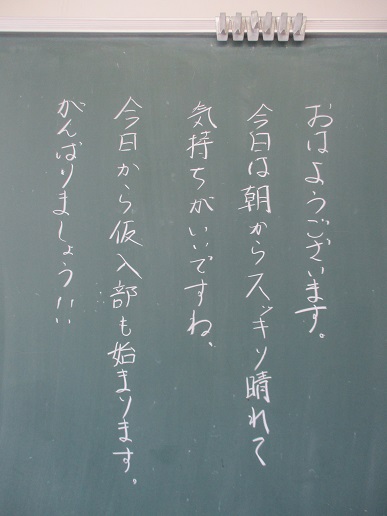 おはようございます。
今日は朝からスッキリ晴れて
気持ちがいいですね、
今日から仮入部も始まります。
がんばりましょう!!